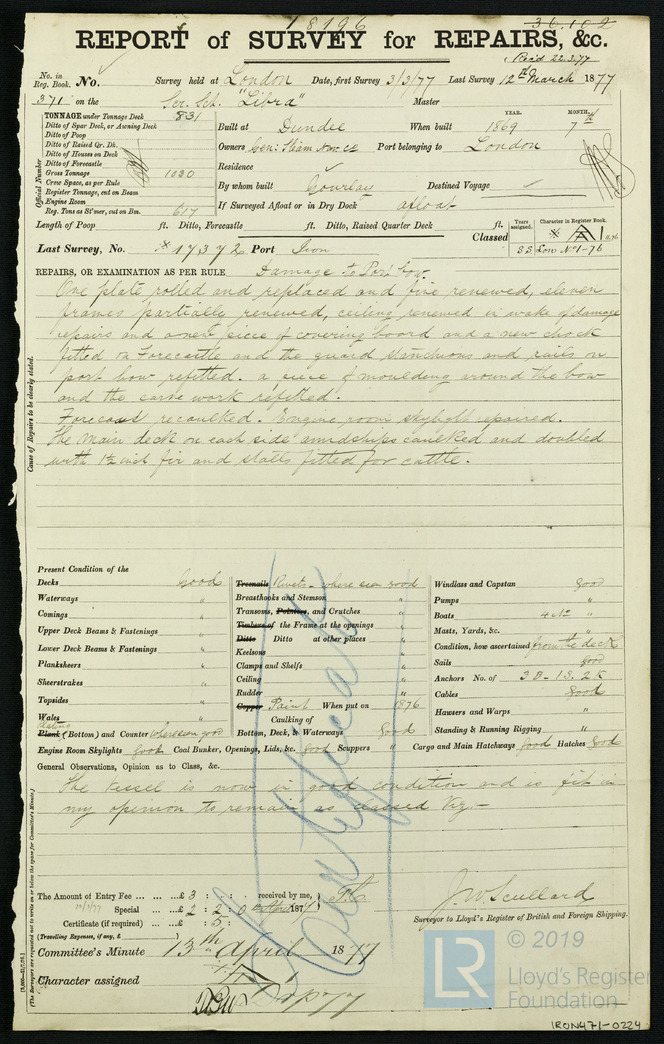 18196
36.102
REPORT of SURVEY for REPAIRS, &c.
Rec'd 22.3.77
No. in Reg. Book. No. Survey held at London Date, first Survey 3/3/77 Last Survey 12th March 1877
371 on the Scr. Sch. "Libra" Master
TONNAGE under Tonnage Deck 831
Ditto of Spar Deck, or Awning Deck
Ditto of Poop
Ditto of Raised Qr. Dk.
Ditto of Houses on Deck
Ditto of Forecastle
Gross Tonnage 1030
Crew Space, as per Rule
Register Tonnage, cut on Beam
Engine Room
Reg. Tons as St'mer, cut on Bm. 617
Official Number
YEAR. MONTH.
Built at Dundee When built 1869 7th
Owners Gen: Steam Nav Co Port belonging to London
Residence
By whom built Gourlay Destined Voyage
If Surveyed Afloat or in Dry Dock afloat
Length of Poop ft. Ditto, Forecastle ft. Ditto, Raised Quarter Deck ft.
Classed
Years assigned. Character in Register Book.
A 1
SS Lon No 1-76
Last Survey, No. 17372 Port Iron
REPAIRS, OR EXAMINATION AS PER RULE Damage to Port bow.
One plate rolled and replaced and five renewed, eleven
frames partially renewed, ceiling renewed in wake of damage
repairs and a new piece of covering board and a new chock
fitted on Forecastle and the guard stanchions and rails on
port bow refitted. a piece of moulding around the bow
and the carve work refitted.
Forecast recaulked. Engine room skylight repaired.
The main deck on each side amidships caulked and doubled
with 1½ inch fir and stalls fitted for cattle.
Cause of Repairs to be clearly stated.
Present Condition of the
Decks Good
Waterways "
Comings "
Upper Deck Beams & Fastenings "
Lower Deck Beams & Fastenings "
Planksheers "
Sheerstrakes "
Topsides "
Wales "
Plating
Plank (Bottom) and Counter where seen good
Treenails Rivets - where seen good
Breasthooks and Stemson "
Transoms, Pointers, and Crutches "
Timbers of the Frame at the openings "
Ditto Ditto at other places "
Keelsons "
Clamps and Shelfs "
Ceiling "
Rudder "
Copper Paint When put on 1876
Caulking of
Bottom, Deck, & Waterways Good
Windlass and Capstan good
Pumps "
Boats 4 "
Masts, Yards, &c. "
Condition, how ascertained from the deck
Sails good
Anchors No. of 3B. 1S. 2K
Cables Good
Hawsers and Warps "
Standing & Running Rigging "
Engine Room Skylights Good Coal Bunker, Openings, Lids, &c. Good Scuppers " Cargo and Main Hatchways Good Hatches Good
General Observations, Opinion as to Class, &c.
The Vessel is now in good condition and is fit in
my opinion to remain as classed Viz:-
The Amount of Entry Fee £ 3 : : received by me,
Special £ 2 : 2 : 0 187
Certificate (if required) £ : 5 :
(Travelling Expenses, if any, £ )
J. W. Scullard
Surveyor to Lloyd's Register of British and Foreign Shipping.
Committee's Minute 13th April 1877
Character assigned A 1
(The Surveyors are requested not to write on or below the space for Committee's Minute.)
© 2019
LR
Lloyd's Register
Foundation
IRON471-0224